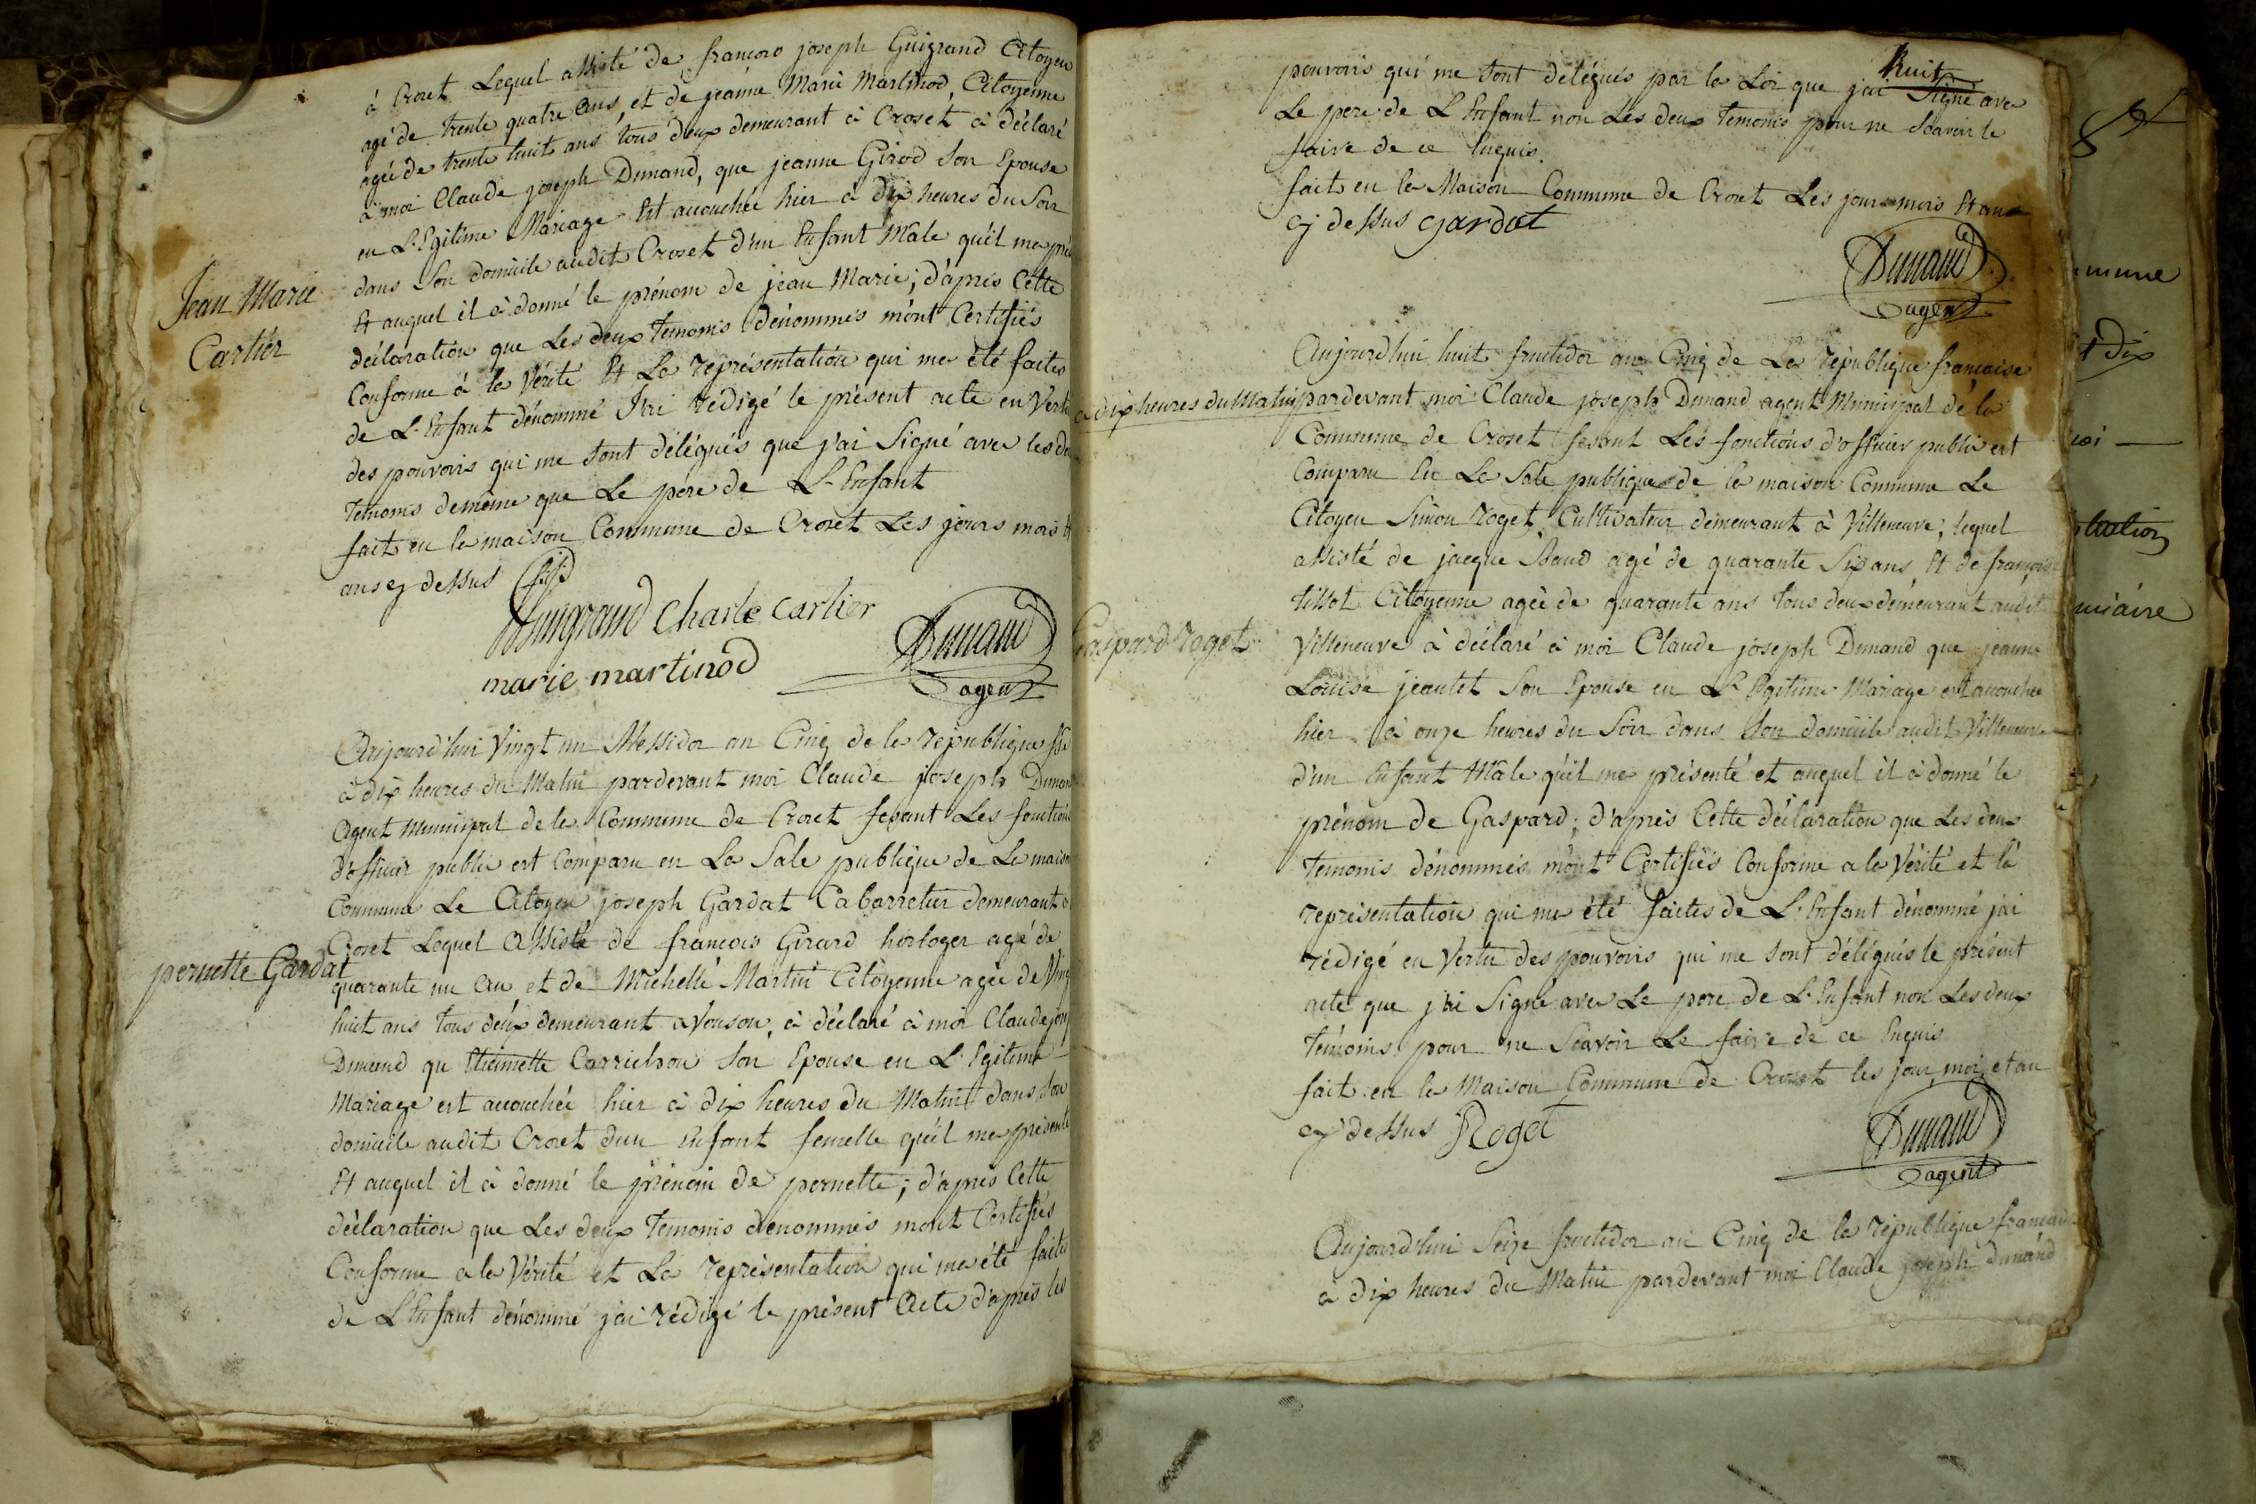 à Crozet Lequel assisté de françois joseph Guigrand Citoyen
agé de trente quatre ans, et de jeanne Marie Martinod, Citoyenne
agée de trente huit ans tous deux demeurant à Croset à déclaré
à moi Claude joseph Dunand, que jeanne Girod Son Epouse
en L'Egitime Mariage Est accouchée hier à dix heures du Soir
dans Son domicile audit Croset d'un Enfant Male qu'il me
Et auquel il à donné le prénom de jean Marie; d'après Cette
Jean Marie
Cartier
déclaration que Les deux Temoins dénommés m'ont Certifiés
Conforme à la Vérité Et La représentation qui ma été faites
de L'Enfant dénommé J'ai redigé le présent acte en Vertu
des pouvoirs qui me sont délégués que j'ai Signé avec les
Temoins demême que Le père de L'Enfant
fait en la maison Commune de Crozet Les jours mois Et
ans cy dessus
Guigrand Charle Cartier
marie martinod
Dunand
agent
Aujourd'hui Vingt un Messidor an Cinq de la république
à dix heures du Matin pardevant moi Claude joseph Dunand
Agent Municipal de la Commune de Crozet fesant Les fonctions
d'officier public est Comparu en La Sale publique de La maison
Commune Le Citoyen joseph Gardat Cabarretier demeurant à
Crozet Lequel Assisté de françois Girard horloger agé de
pernette Gardat
quarante un an et de Michelle Martin Citoyenne agée de Vingt
huit ans tous deux demeurant a Vouson, à déclaré à moi Claude
Dunand qu Etiennette Carrichon Son Epouse en L'Egitime
Mariage est accouchée hier à dix heures du Matin dans Son
domicile audit Crozet d'un Enfant femelle qu'il me présente
Et auquel il à donné le prénom de pernette; d'après Cette
déclaration que Les deux Temoins dénommés m'ont Certifiés
Conforme a la Vérité et La représentation qui ma été faites
de L'Enfant dénommé j'ai rédigé le présent Acte d'après les
pouvoirs qui me sont délégués par la Loi que j'ai Signé avec
huit
Le père de L'Enfant non Les deux Temoins pour ne Scavoir le
faire de ce Enquis.
fait en la Maison Commune de Crozet Les jour mois Et an
cy dessus gardat
Dunand
agent
Aujourd'hui huit fructidor an Cinq de La république française
a dix heures du Matin pardevant moi Claude joseph Dunand agent Municipal de la
Commune de Crozet fesant Les fonctions d'officier public est
Comparu En La Sale publique de la maison Commune Le
Citoyen Simon roget, Cultivateur demeurant à Villeneuve, lequel
assisté de jacque Baud agé de quarante Six ans Et de françoise
tissot Citoyenne agée de quarante ans tous deux demeurant audit
Gaspard roget
Villeneuve à déclaré à moi Claude joseph Dunand que jeanne
Louise jeantet Son Epouse en L'Egitime Mariage est accouchée
hier à onze heures du Soir dans Son domicile audit Villeneuve
d'un Enfant Male qu'il me présenté et auquel il à donné le
prénom de Gaspard; d'après Cette déclaration que Les deux
Temoins dénommés m'ont Certifiés Conforme a la Vérité et la
représentation qui ma été faites de L'Enfant dénommé j'ai
rédigé en Vertu des pouvoirs qui me sont délégués le présent
acte que j'ai Signé avec Le père de L'Enfant non Les deux
Témoins pour ne Scavoir Le faire de ce Enquis
fait en la Maison Commune de Crozet les jour, mois et an
cy dessus Roget
Dunand
agent
Aujourd'hui Seize fructidor an Cinq de la république
à dix heures du Matin pardevant moi Claude joseph dunand